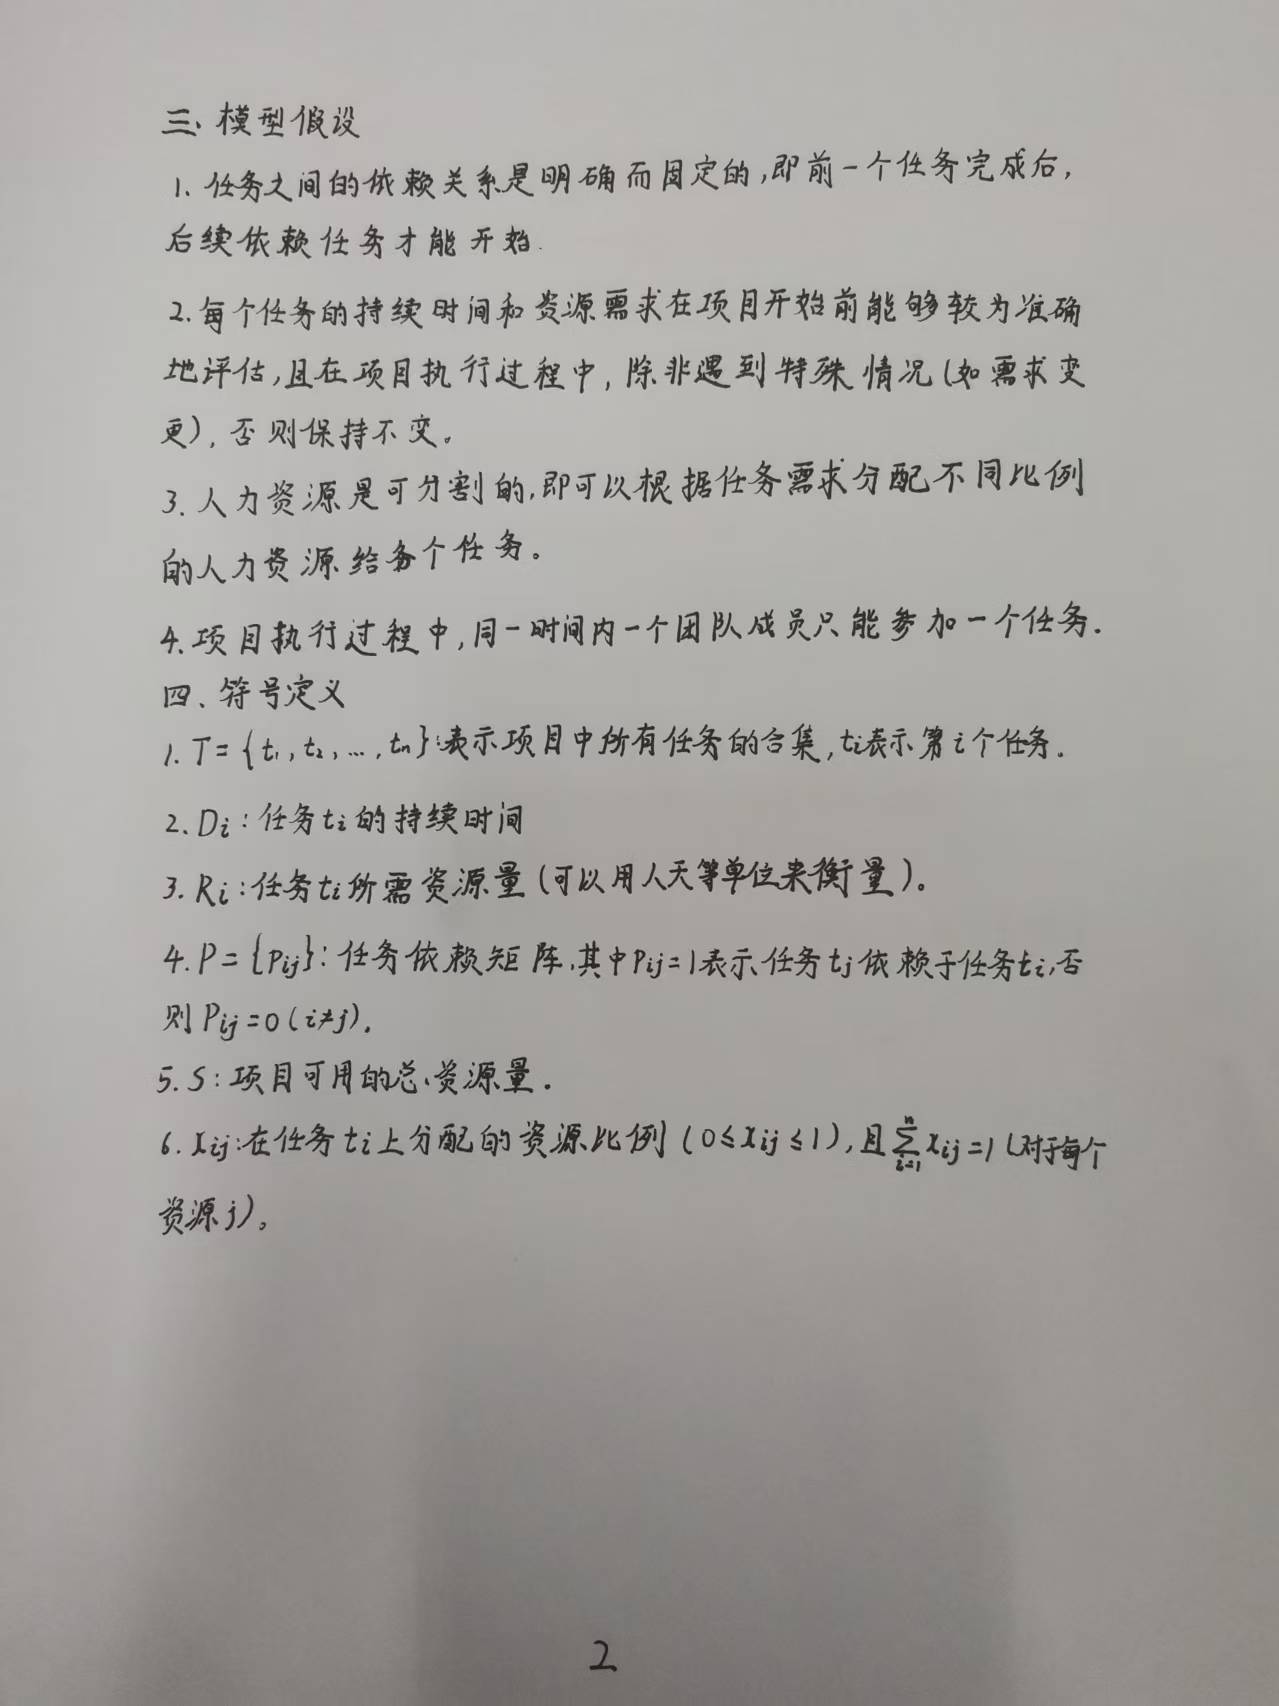 三、模型假设
1. 任务之间的依赖关系是明确而固定的,即前一个任务完成后,
后续依赖任务才能开始.
2.每个任务的持续时间和资源需求在项目开始前能够较为准确
地评估,且在项目执行过程中,除非遇到特殊情况(如需求变
更),否则保持不变。
3.人力资源是可分割的,即可以根据任务需求分配不同比例
的人力资源给各个任务。
4.项目执行过程中,同一时间内一个团队成员只能参加一个任务.
四、符号定义
1. T={t₁,t₂,…,tn}:表示项目中所有任务的合集,ti表示第i个任务.
2. Di:任务ti的持续时间
3. Ri:任务ti所需资源量(可以用人天等单位来衡量)。
4. P={Pij}:任务依赖矩阵,其中Pij=1表示任务tj依赖于任务ti,否
则Pij=0(i≠j).
5. S:项目可用的总资源量.
6. xij:在任务ti上分配的资源比例(0≤xij≤1),且∑ⁿᵢ₌₁xij=1(对于每个
资源j)。
2